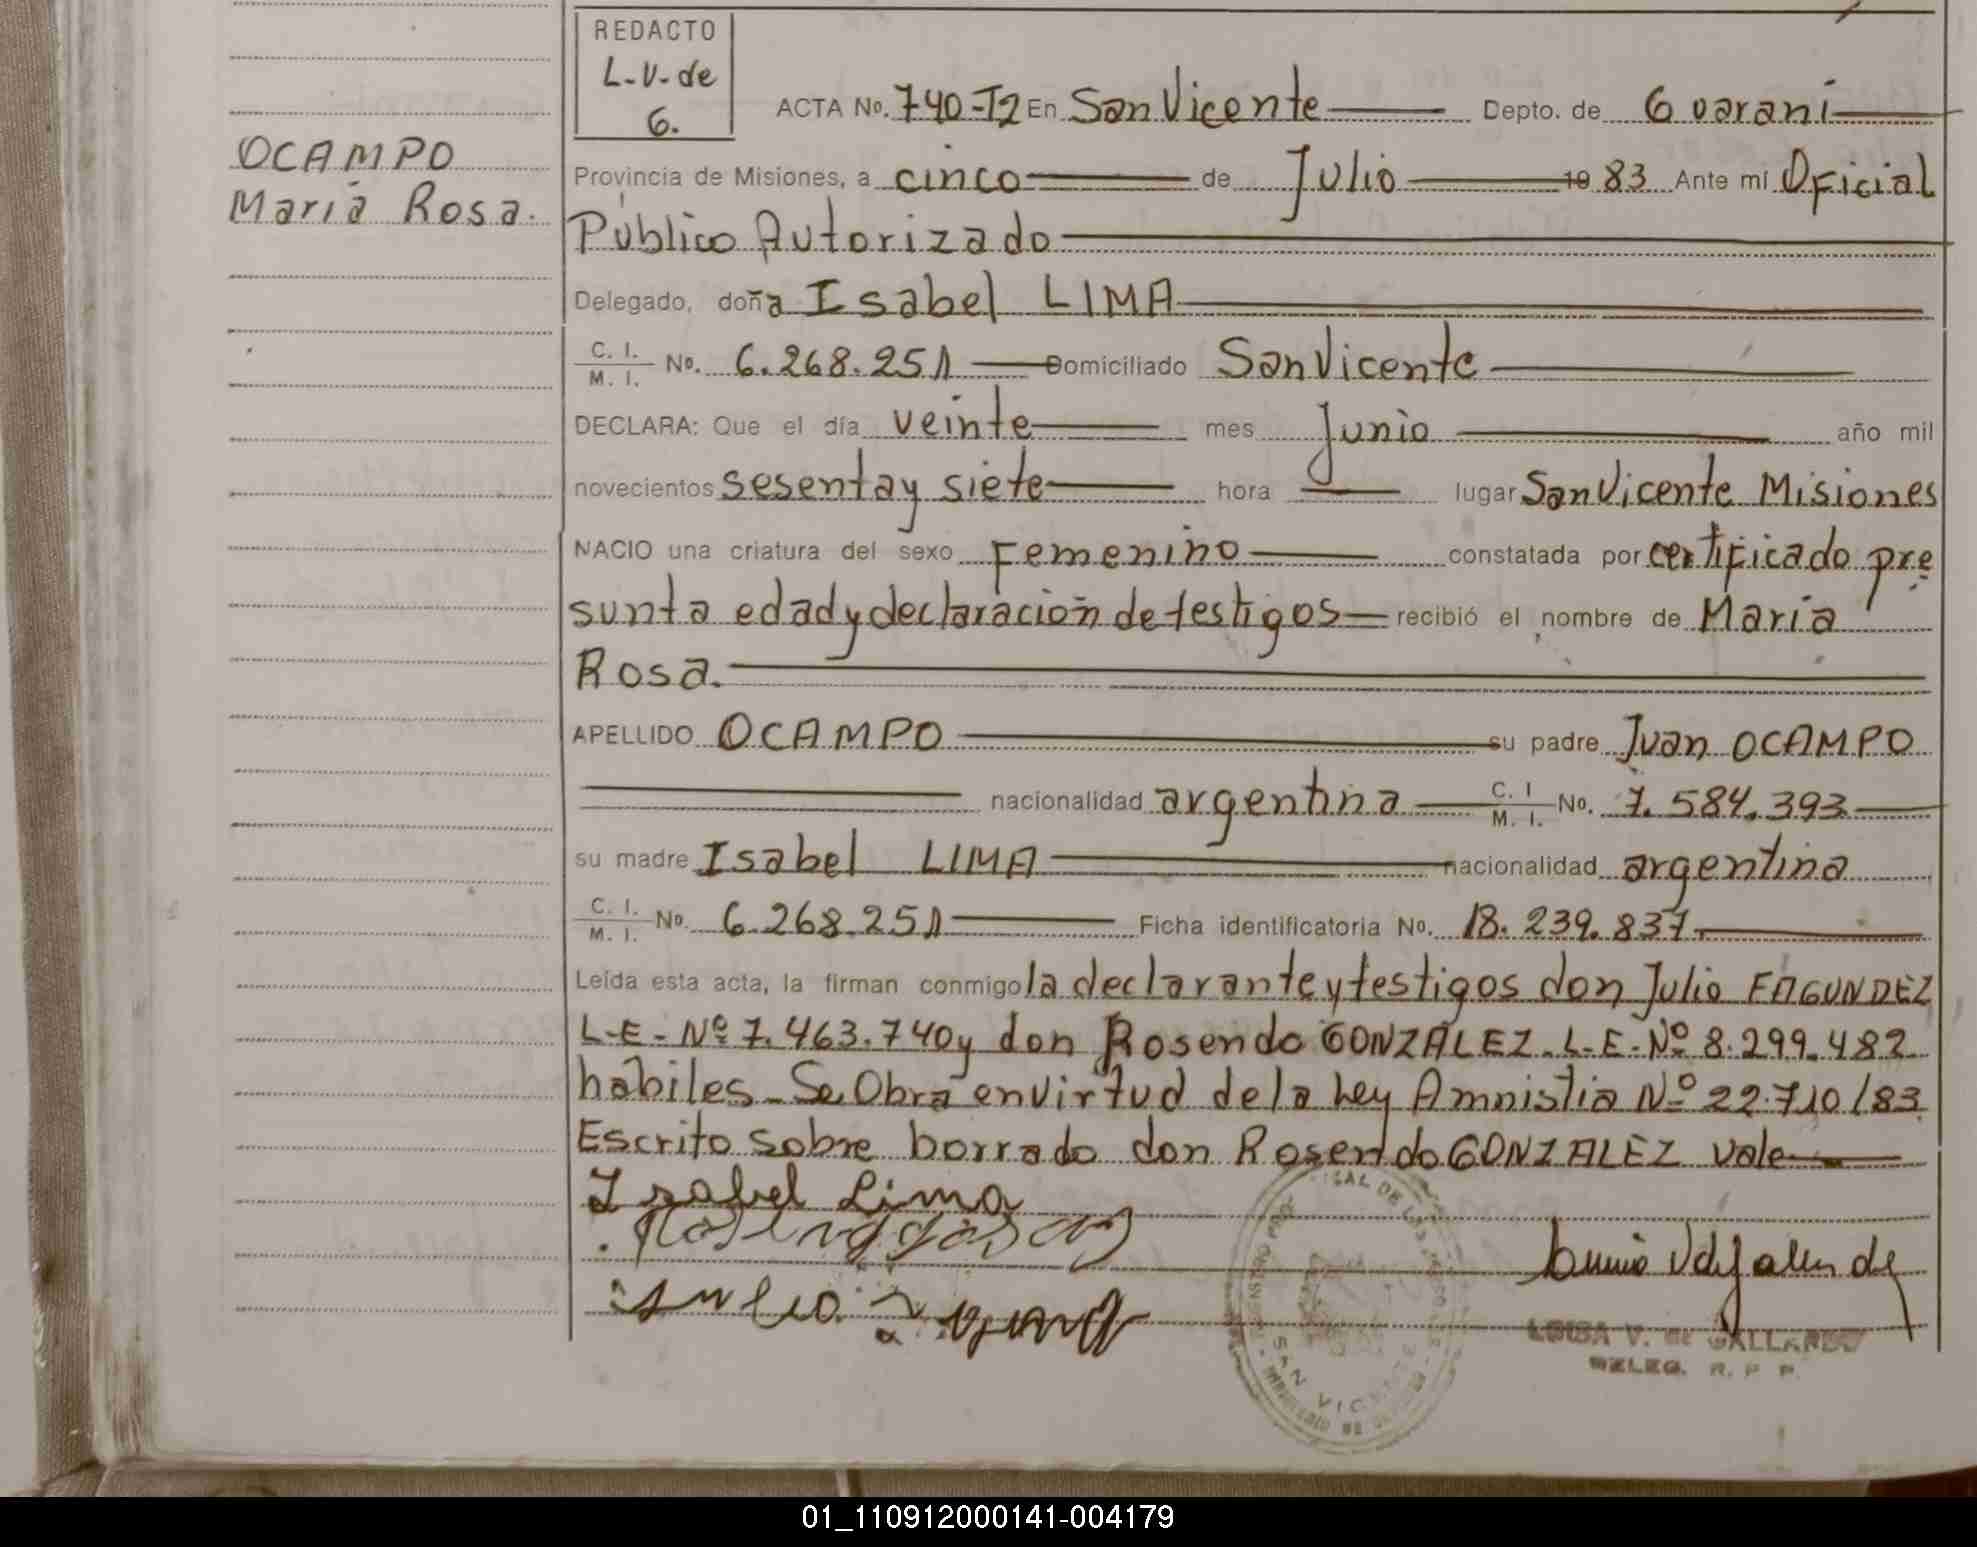 REDACTO
L-V-de
G.
ACTA No. 740-T2 En San Vicente Depto. de Guarani
OCAMPO
Maria Rosa.
Provincia de Misiones, a cinco de Julio 1983 Ante mí Oficial
Público Autorizado
Delegado, doña Isabel LIMA
C. I. / M. I. No. 6.268.251 Domiciliado San Vicente
DECLARA: Que el día veinte mes Junio año mil
novecientos sesenta y siete hora lugar San Vicente Misiones
NACIO una criatura del sexo Femenino constatada por certificado pre
sunta edad y declaración de testigos recibió el nombre de Maria
Rosa.
APELLIDO OCAMPO su padre Juan OCAMPO
nacionalidad argentina C. I / M. I. No. 7.584.393
su madre Isabel LIMA nacionalidad argentina
C. I. / M. I. No. 6.268.251 Ficha identificatoria No. 18.239.837
Leída esta acta, la firman conmigo la declarante y testigos don Julio FAGUNDEZ
L-E- Nº 7.463.740 y don Rosendo GONZALEZ. L-E- Nº 8.299.482
habiles. Se Obra en virtud de la Ley Amnistia Nº 22.710/83
Escrito sobre borrado don Rosendo GONZALEZ vale
Isabel Lima
LUISA V. de GALLARDO
DELEG. R. P. P.
SAN VICENTE
01_110912000141-004179